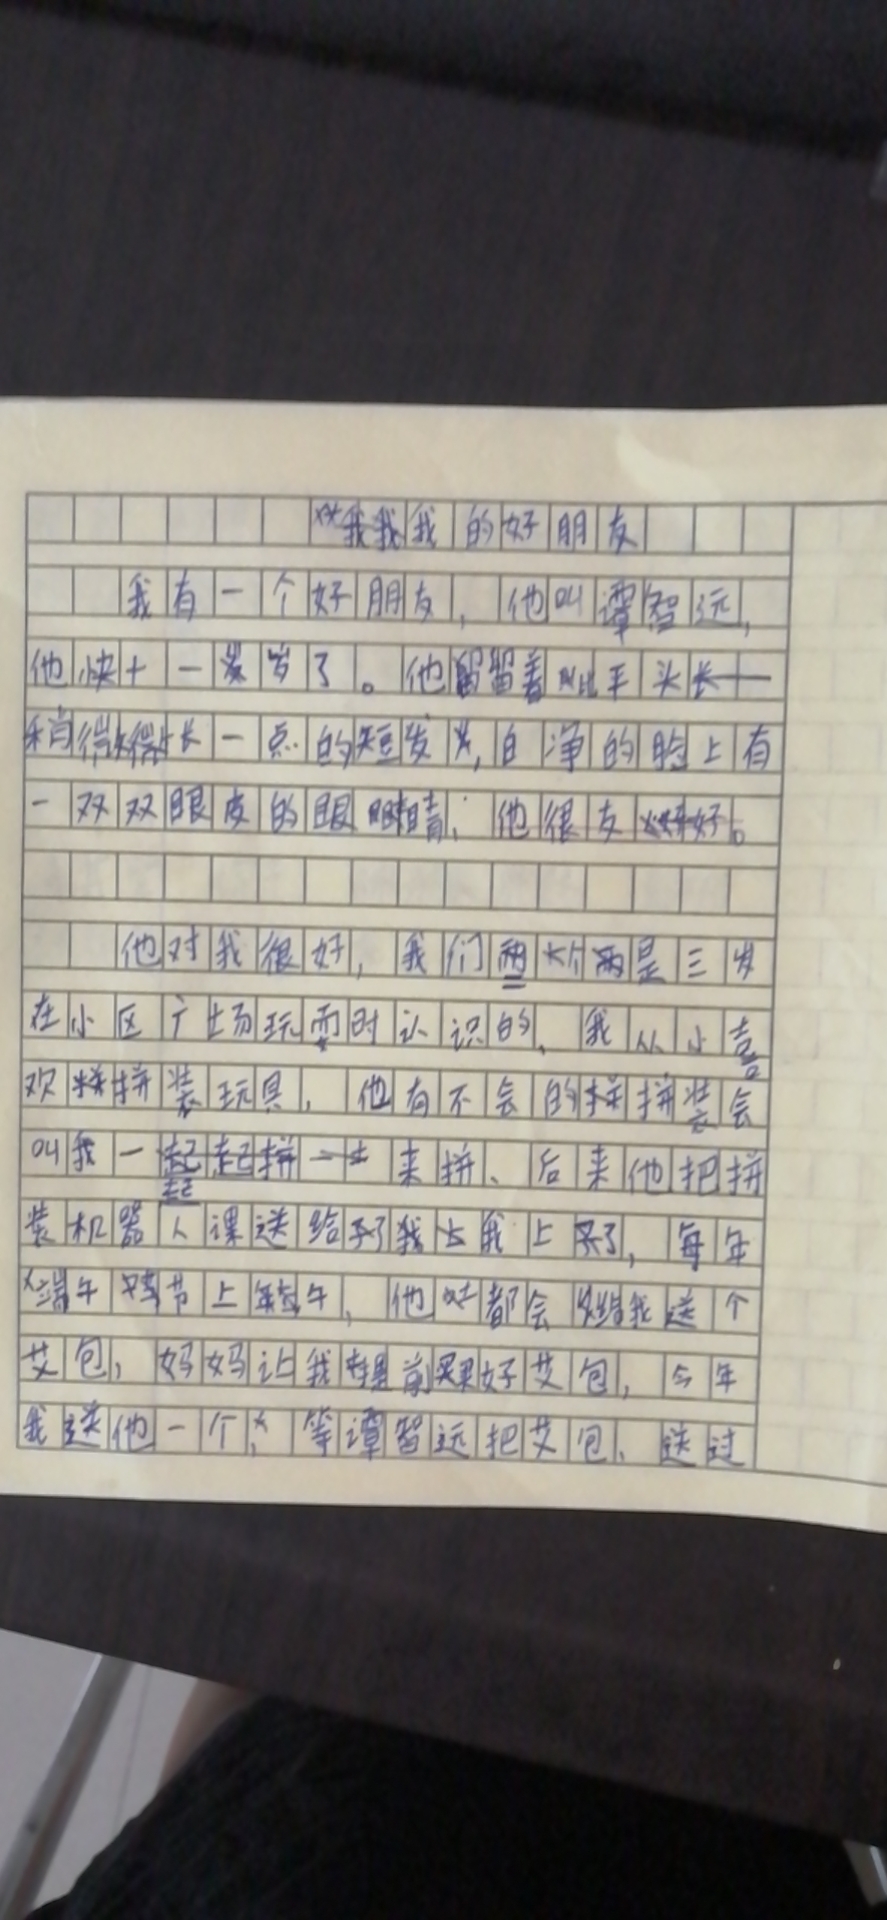 我的好朋友
我有一个好朋友，他叫谭智远，
他快十一岁了。他留着比平头长
稍微长一点的短发，白净的脸上有
一双双眼皮的眼睛，他很友好。
他对我很好，我们两是三岁
在小区广场玩耍时认识的、我从小喜
欢拼装玩具，他有不会的拼装会
叫我一起来拼、后来他把拼
装机器人课送给了我上了，每年
端午节上午，他都会给我送个
艾包，妈妈让我提前买好艾包，今年
我送他一个，等谭智远把艾包、送过